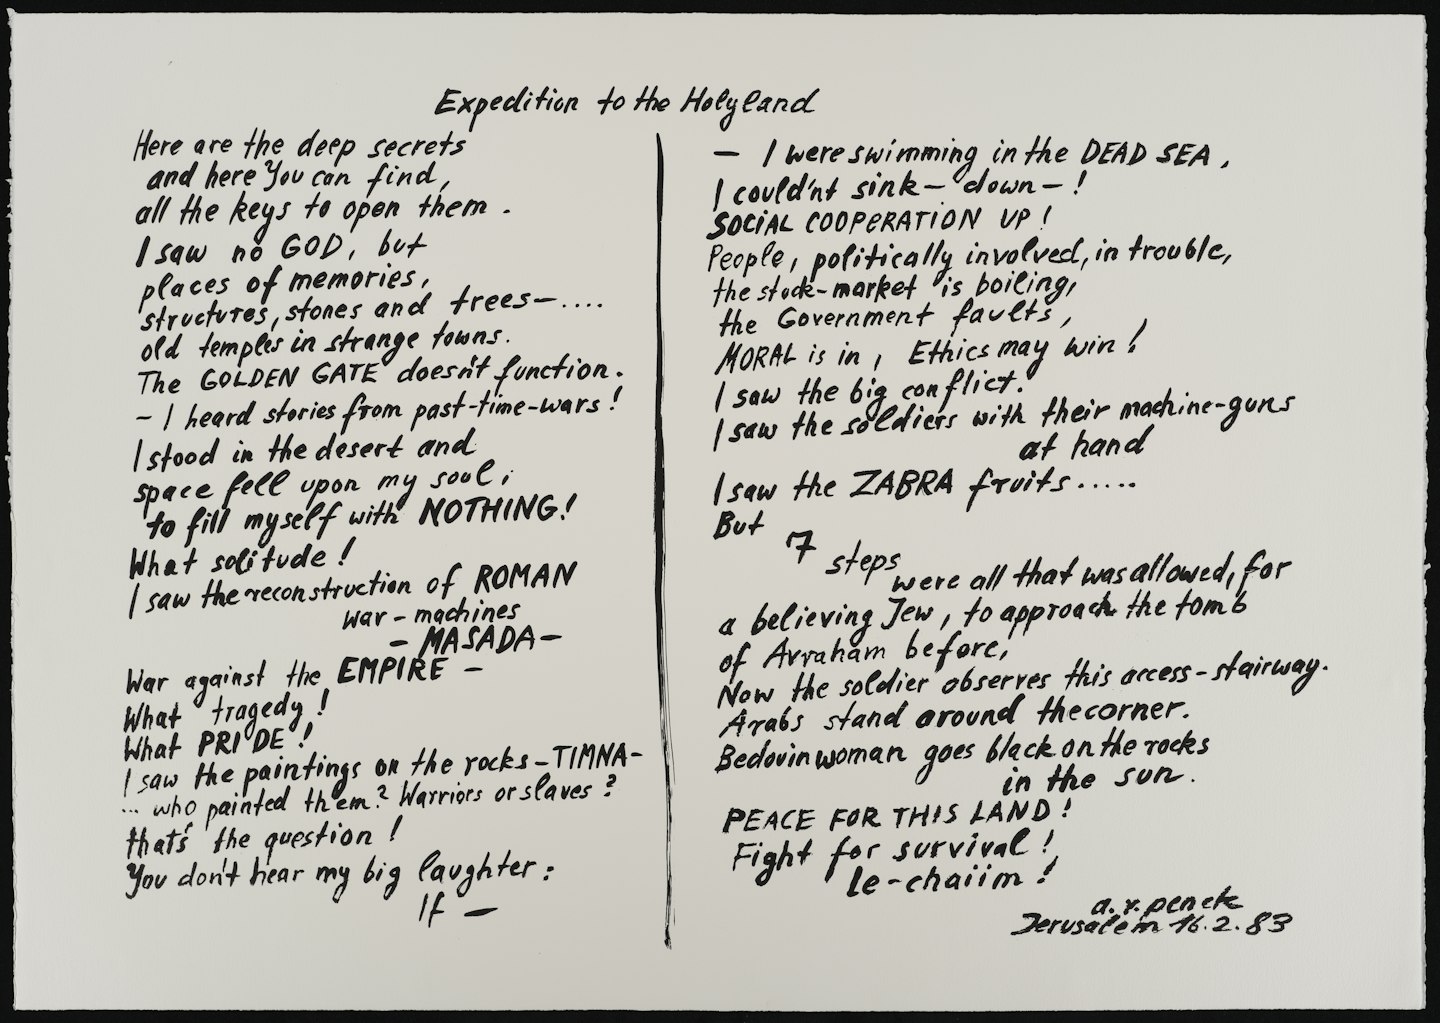 Expedition to the Holyland
Here are the deep secrets
and here You can find,
all the keys to open them.
I saw no GOD, but
places of memories,
structures, stones and trees—....
old temples in strange towns.
The GOLDEN GATE doesn't function.
– I heard stories from past-time-wars!
I stood in the desert and
space fell upon my soul;
to fill myself with NOTHING!
What solitude!
I saw the reconstruction of ROMAN
war-machines
– MASADA –
War against the EMPIRE –
What tragedy!
What PRIDE!
I saw the paintings on the rocks – TIMNA –
... who painted them? Warriors or slaves?
that's the question!
You don't hear my big laughter:
If —
— I were swimming in the DEAD SEA,
I could'nt sink – down – !
SOCIAL COOPERATION UP!
People, politically involved, in trouble,
the stock-market is boiling,
the Government faults,
MORAL is in, Ethics may win!
I saw the big conflict.
I saw the soldiers with their machine-guns
at hand
I saw the ZABRA fruits.....
But
7
steps
were all that was allowed, for
a believing Jew, to approach the tomb
of Avraham before,
Now the soldier observes this access-stairway.
Arabs stand around the corner.
Bedouin woman goes black on the rocks
in the sun.
PEACE FOR THIS LAND!
Fight for survival!
le-chaiim!
a.r.penck
Jerusalem 16.2.83